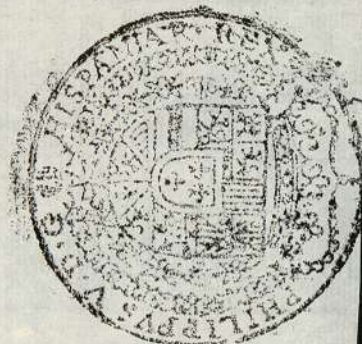 PHILIPPVS V. D. G. HISPANIAR. REX